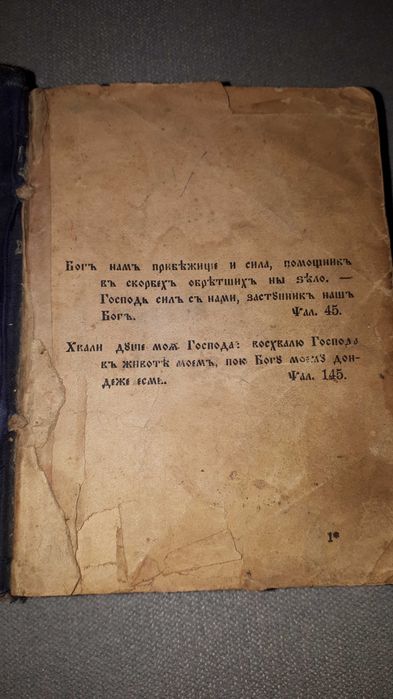 Богъ намъ прибѣжище и сила, помощникъ
въ скорбехъ обрѣтшихъ ны ѕѣло. —
Господь силъ съ нами, заступникъ нашъ
Богъ. Ѱал. 45.
Хвали душе моѧ Господа: восхвалю Господа
въ животѣ моемъ, пою Богу моему дон-
деже есмь. Ѱал. 145.
1*